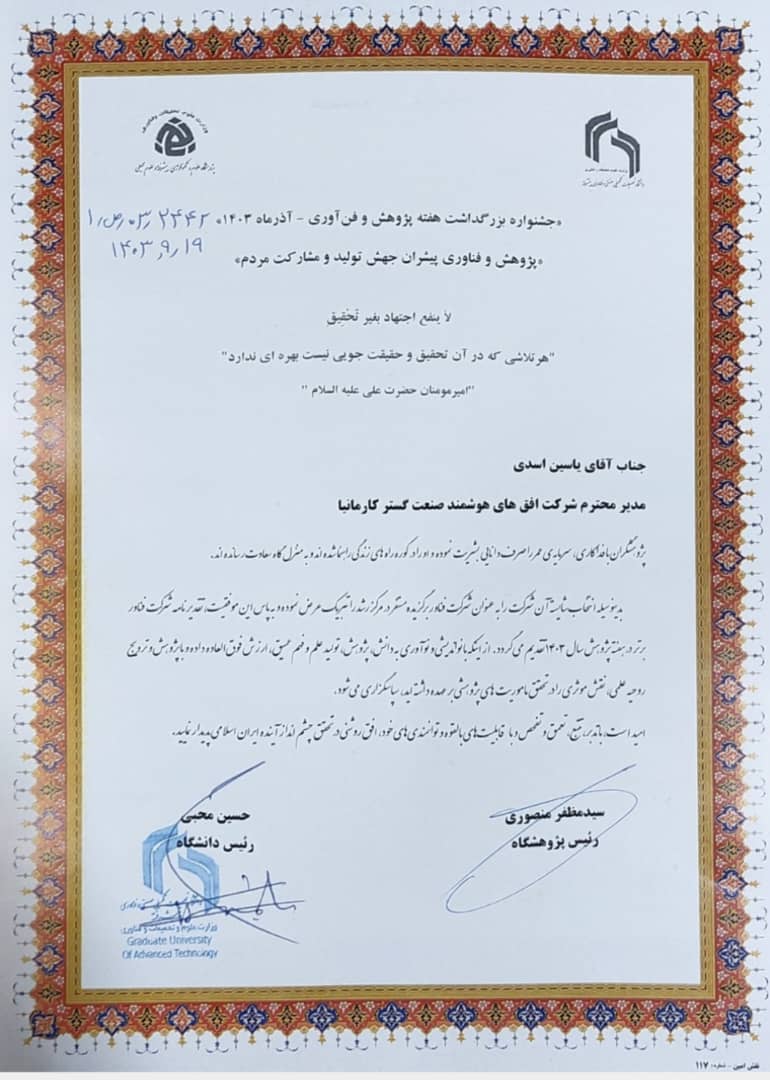 وزارت علوم، تحقیقات و فناوری
«جشنواره بزرگداشت هفته پژوهش و فن‌آوری - آذرماه ۱۴۰۳»
۱۴۰۳٫۹٫۱۹
«پژوهش و فناوری پیشران جهش تولید و مشارکت مردم»
لاَ ینفع اجتهاد بغیر تَحْقیقٍ
"هر تلاشی که در آن تحقیق و حقیقت جویی نیست بهره ای ندارد"
"امیرمومنان حضرت علی علیه السلام "
جناب آقای یاسین اسدی
مدیر محترم شرکت افق های هوشمند صنعت گستر کارمانیا
پژوهشگران با فداکاری، سرمایه‌ی عمر را صرف دانایی بشریت نموده و او را در کوره راه های زندگی راهنما شده اند و به منزل گاه سعادت رسانده اند.
بدینوسیله انتخاب شایسته آن شرکت را به عنوان شرکت فناور برگزیده مستقر در مرکز رشد را تبریک عرض نموده و به پاس این موفقیت، تقدیرنامه شرکت فناور
برتر در هفته پژوهش سال ۱۴۰۳ تقدیم می گردد. از اینکه با نواندیشی و نوآوری به دانش، پژوهش، تولید علم و فهم عمیق، ارزش فوق العاده داده و با پژوهش و ترویج
روحیه علمی، نقش موثری را در تحقق ماموریت های پژوهشی بر عهده داشته اید، سپاسگزاری می شود.
امید است، با تدبر، تتبع، تعمق و تفحص و با قابلیت های بالقوه و توانمندی های خود، افق روشنی در تحقق چشم انداز آینده ایران اسلامی پدیدار نمایید.
سیدمظفر منصوری
رئیس پژوهشگاه
حسین محبی
رئیس دانشگاه
وزارت علوم و تحقیقات و فناوری
Graduate University
Of Advanced Technology
نقش امین - شماره: ۱۱۷